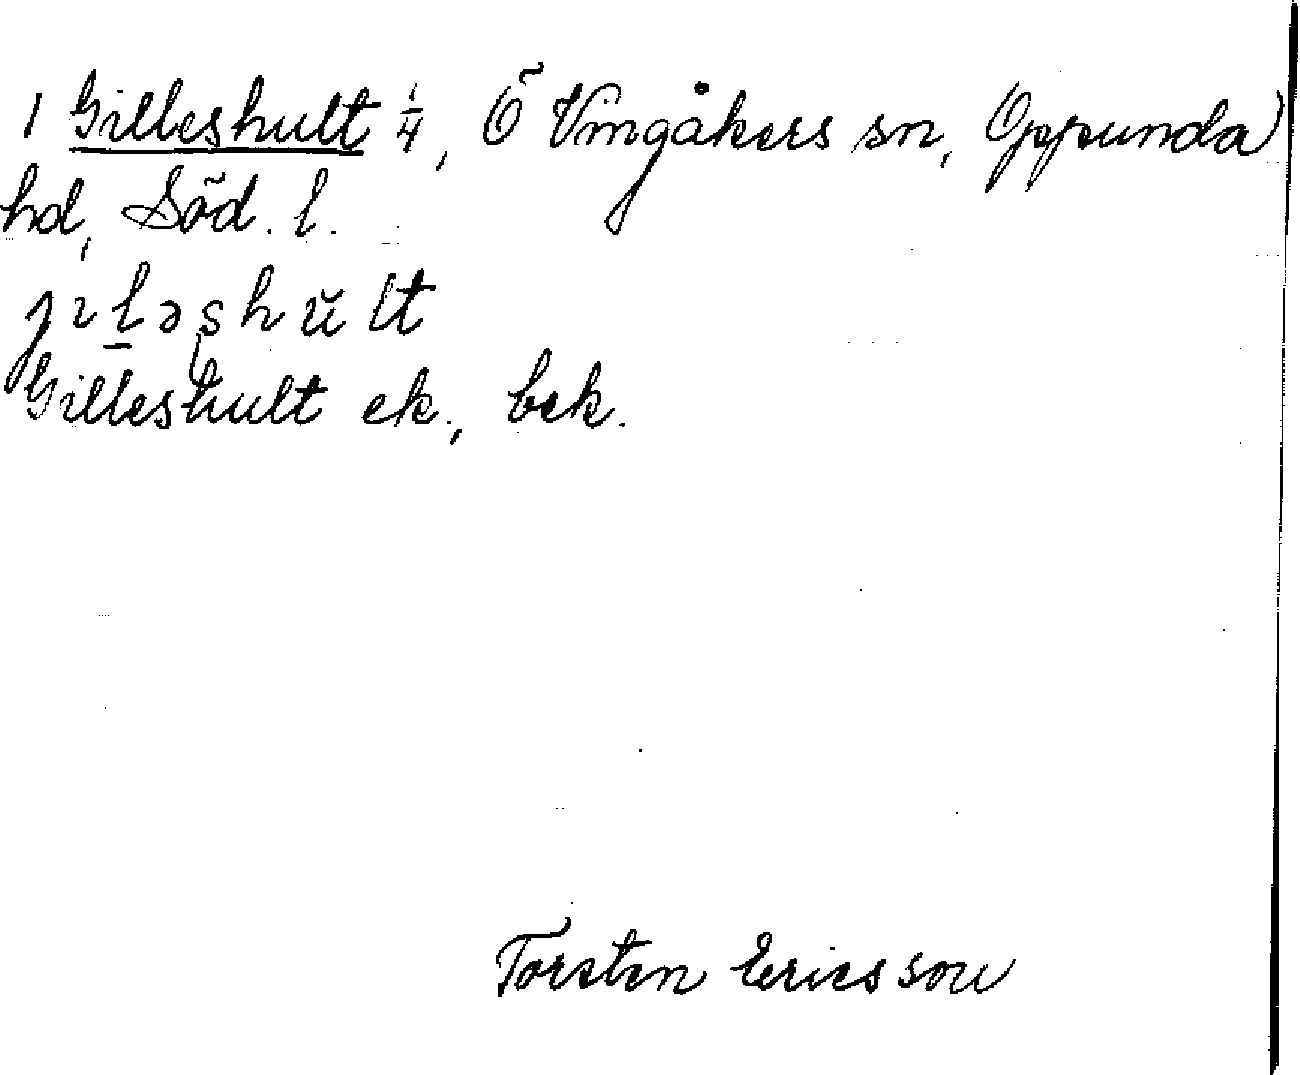 1 Gilleshult ¼, Ö Vingåkers sn, Oppunda
hd, Söd. l.
jıl̲əshŭlt
Gilleshult ek., bek.
Torsten Ericsson